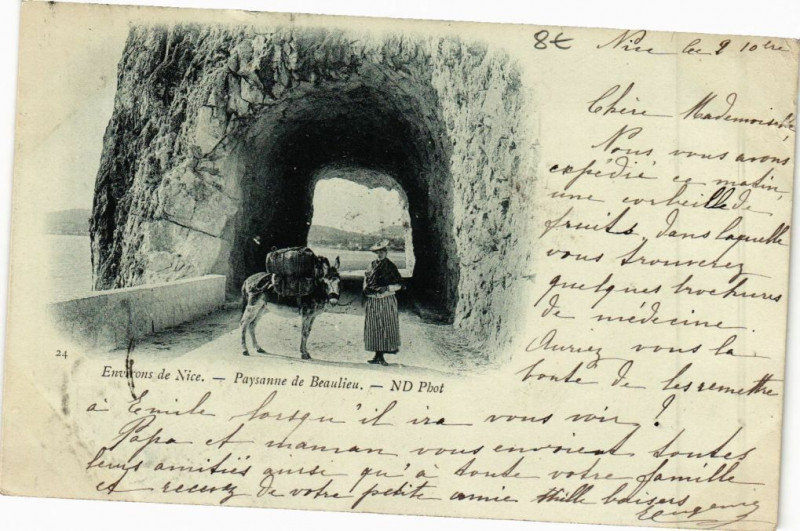 8€
Nice le 2 10bre
Chère Mademoiselle,
Nous vous avons
expédié ce matin,
une corbeille de
fruits, dans laquelle
vous trouverez
quelques brochures
de médecine.
Auriez vous la
bonté de les remettre
24
Environs de Nice. — Paysanne de Beaulieu. — ND Phot
à Emile lorsqu'il ira vous voir?
Papa et maman vous envoient toutes
leurs amitiés ainsi qu'à toute votre famille
et recevez de votre petite amie mille baisers